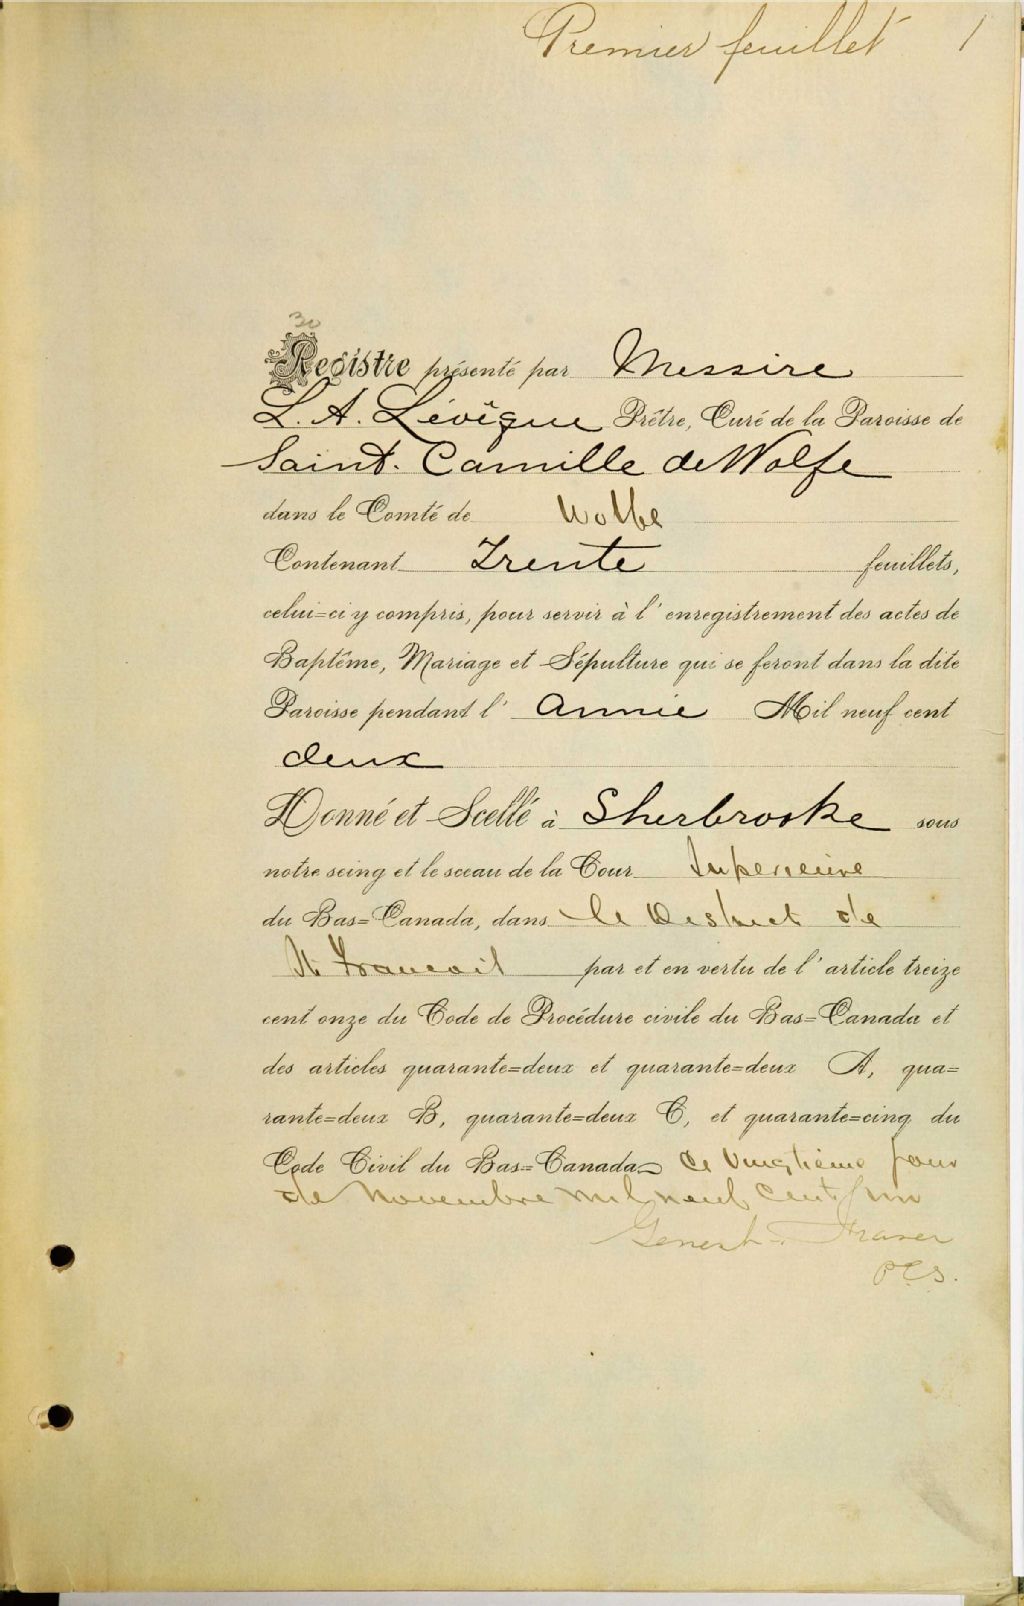 Premier feuillet 1
30
Registre présenté par Messire
L. A. Lévêque Prêtre, Curé de la Paroisse de
Saint-Camille de Wolfe
dans le Comté de Wolfe
Contenant Trente feuillets,
celui=ci y compris, pour servir à l'enregistrement des actes de
Baptême, Mariage et Sépulture qui se feront dans la dite
Paroisse pendant l'année Mil neuf cent
deux
Donné et Scellé à Sherbrooke sous
notre seing et le sceau de la Cour Superieure
du Bas=Canada, dans le District de
St Francois par et en vertu de l'article treize
cent onze du Code de Procédure civile du Bas=Canada et
des articles quarante=deux et quarante=deux A, qua=
rante=deux B, quarante=deux C, et quarante=cinq du
Code Civil du Bas=Canada ce vingtième jour
de Novembre mil neuf cent un
Genest Fraser
P C S.